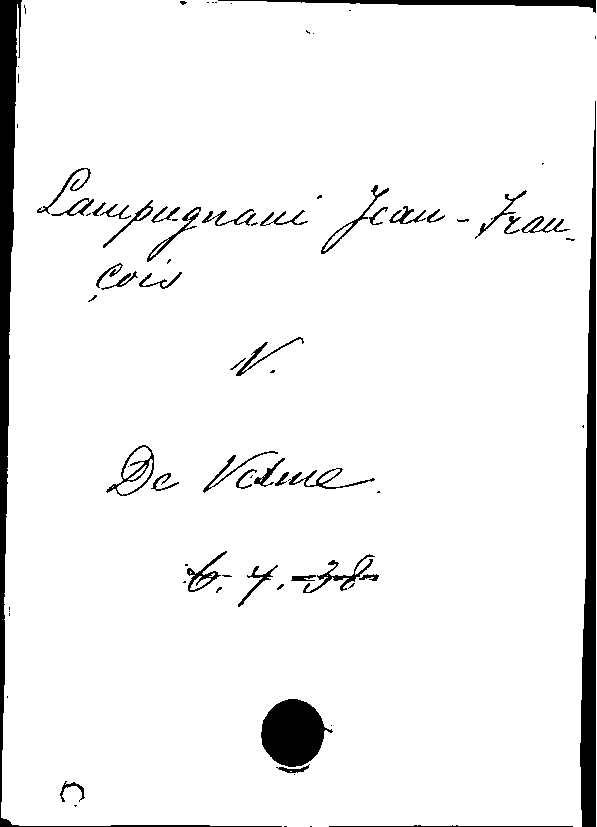 Lampugnani Jean-Fran-
çois
V.
De Vesme.
6.4.38